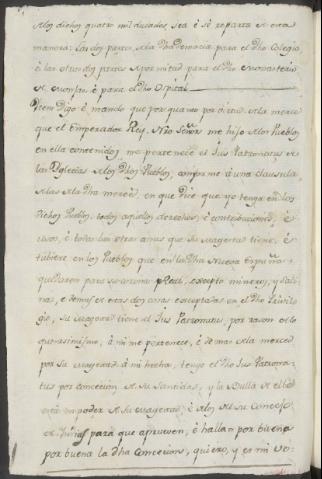 dlos dichos quatro mil ducados, sea é se reparta en esta
manera: las dos partes, dela dha demacia para el dho Colegio
é las otras dos partes por mitad para el dho Monasterio
de Monjas, é para el dho Ospital
Item Digo é mando que por quanto por virtud dela merced
que el Emperador Rey Nro Señor me hizo delos Pueblos
en ella contenidos me pertenece el Ius Patronatus de
las Yglesias delos dhos Pueblos, conforme á una clausula
dela dha merced, en que dice que yo tenga en los
dichos Pueblos, todos aquellos derechos, é contribuciones, é
é todas las otras cosas que su magestad tiene, é
tubiere en los Pueblos que en la dha Nueva España
para su corona Real, excepto mineros, y Sali-
nas, é demas otras dos cosas exceptadas en el dho Privile-
gio, su magestad tiene el Ius Patronatus, por razon de lo
qual é á mi me pertenece, é demas dela merced
por su magestad á mi hecha, tengo el dho Ius Patrona-
tus por concecion de su Santidad, y la Bulla de ella
está en poder de su magestad, é delos de su Concejo
de Yndias para que aprueven, é hallan por buena
por buena la dha Concecion, quiero, y es mi vo-